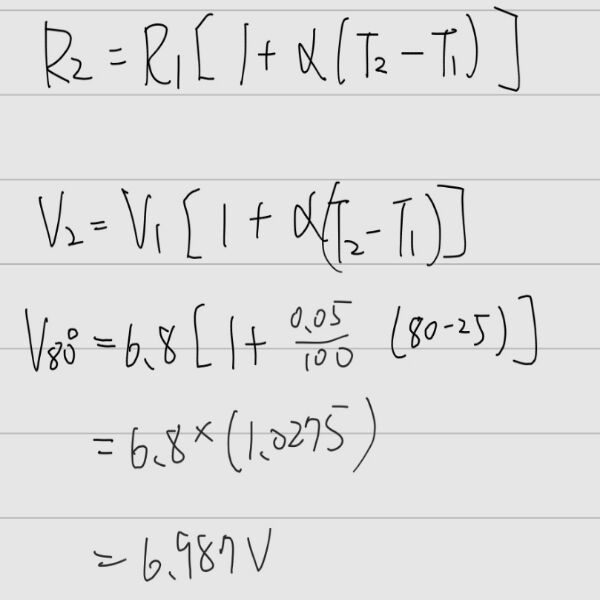 R₂ = R₁ [ 1 + α (T₂ − T₁) ]
V₂ = V₁ [ 1 + α (T₂ − T₁) ]
V₈₀° = 6.8 [ 1 + 0.05/100 (80 − 25) ]
= 6.8 × (1.0275)
= 6.987 V